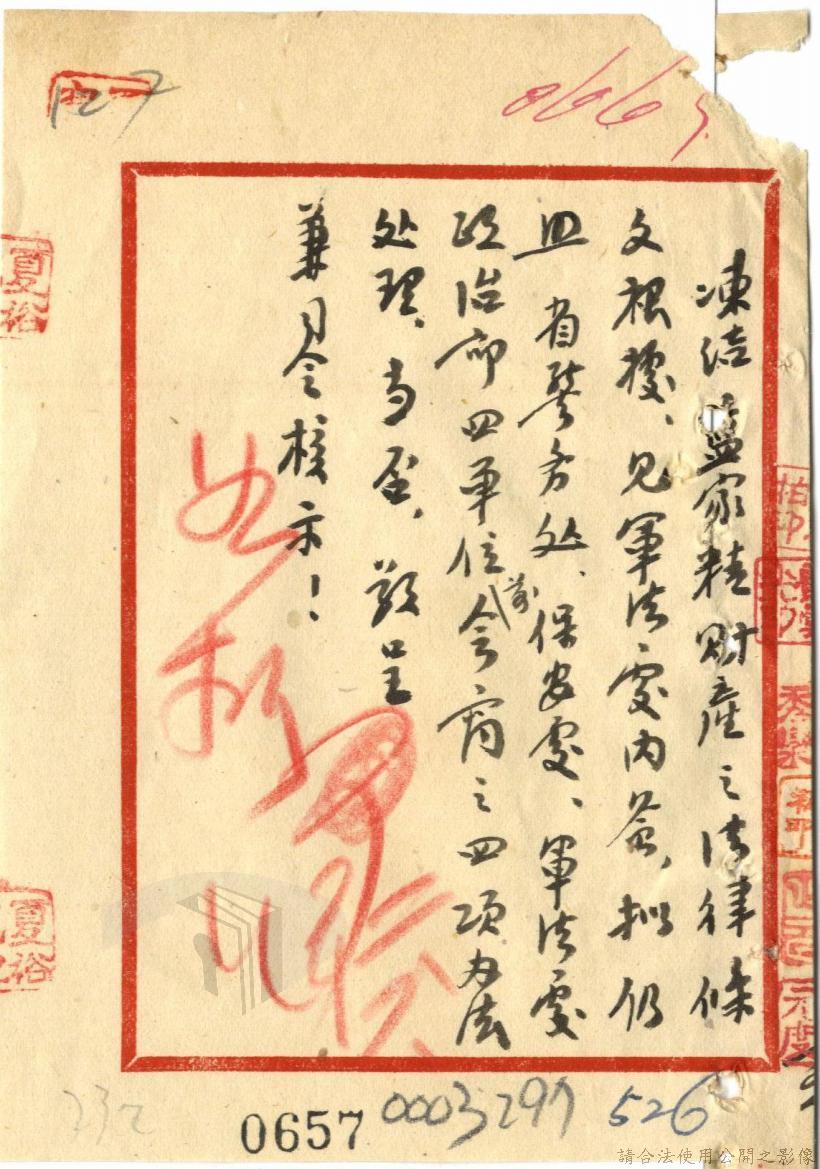 凍結藍家精財產之法律條
文根據、見軍法處內簽、拟仍
照 省警务处、保安處、軍法處
政治部四單位會商之四項办法
前
处理、当否、敬呈
兼司令核示！
如拟
夏裕
夏裕
0657
0003297
526
232
127
請合法使用公開之影像